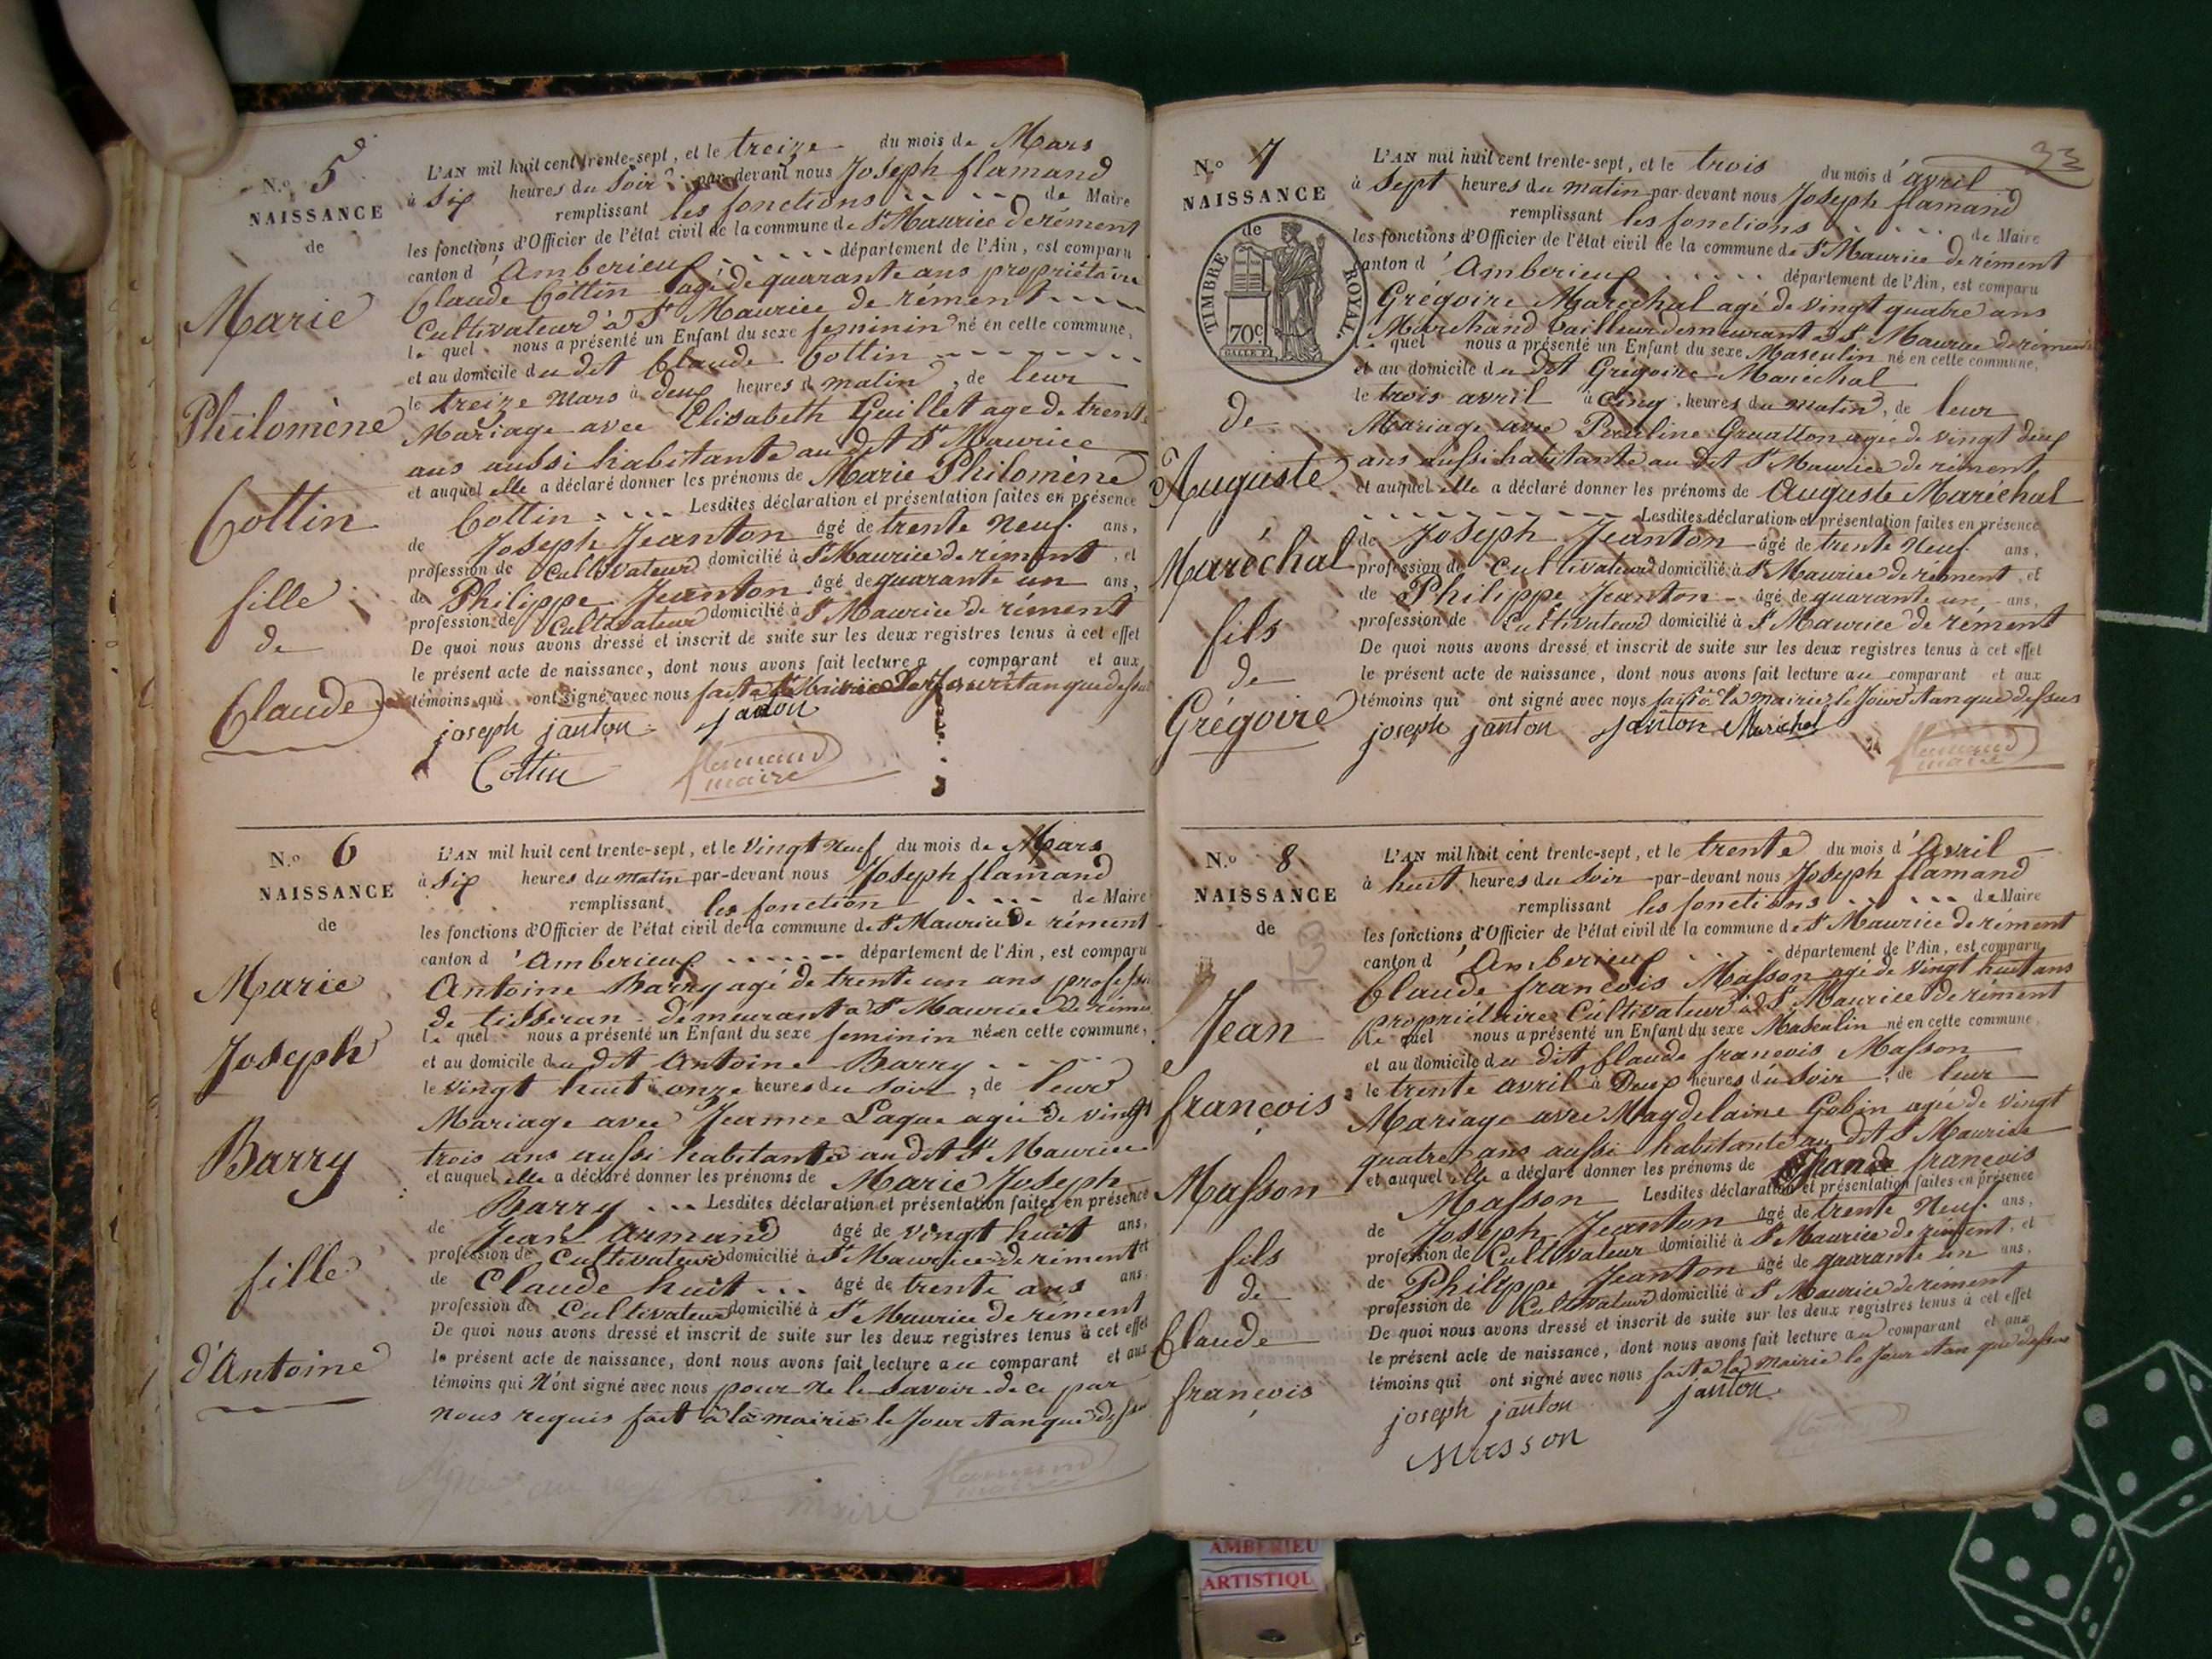 N.o 5
NAISSANCE
de
Marie
Philomène
Cottin
fille
de
Claude
L'AN mil huit cent trente-sept, et le treize du mois de Mars
à six heures du soir par-devant nous Joseph flamand
remplissant les fonctions de Maire
les fonctions d'Officier de l'état civil de la commune de St Maurice de rément
canton d'Amberieux département de l'Ain, est comparu
Claude Cottin agé de quarante ans propriétaire
Cultivateur à St Maurice de rément
le quel nous a présenté un Enfant du sexe feminin né en cette commune,
et au domicile du dit Claude Cottin
le treize mars à deux heures d matin, de leur
Mariage avec Elisabeth Guillet age de trente
ans aussi habitante au dit St Maurice
et auquel elle a déclaré donner les prénoms de Marie Philomène
Cottin Lesdites déclaration et présentation faites en présence
de Joseph Jeanton âgé de trente neuf ans,
profession de Cultivateur domicilié à St Maurice de rément, et
de Philippe Jeanton âgé de quarante un ans,
profession de Cultivateur domicilié à St Maurice de rément
De quoi nous avons dressé et inscrit de suite sur les deux registres tenus à cet effet
le présent acte de naissance, dont nous avons fait lecture a comparant et aux
témoins qui ont signé avec nous fait à
joseph janton janton
Cottin flamand
maire
N.o 6
NAISSANCE
de
Marie
Joseph
Barry
fille
d'Antoine
L'AN mil huit cent trente-sept, et le vingt neuf du mois de Mars
à six heures du matin par-devant nous Joseph flamand
remplissant les fonction de Maire
les fonctions d'Officier de l'état civil de la commune de St Maurice de rément
canton d'Amberieux département de l'Ain, est comparu
Antoine Barry agé de trente un ans profession
de tisseran demeurant à St Maurice de rément
le quel nous a présenté un Enfant du sexe feminin né en cette commune,
et au domicile du dit Antoine Barry
le vingt huit à onze heures du soir, de leur
Mariage avec Jeanne Laque agée de vingt
trois ans aussi habitante au dit St Maurice
et auquel elle a déclaré donner les prénoms de Marie Joseph
Barry Lesdites déclaration et présentation faites en présence
de Jean Armand âgé de vingt huit ans,
profession de Cultivateur domicilié à St Maurice de rément et
de Claude huit âgé de trente ans ans
profession de Cultivateur domicilié à St Maurice de rément
De quoi nous avons dressé et inscrit de suite sur les deux registres tenus à cet effet
le présent acte de naissance, dont nous avons fait lecture au comparant et aux
témoins qui N'ont signé avec nous pour ne le savoir de ce par
nous requis fait à la mairie le Jour et an que dessus
flamand
maire
33
N.o 7
NAISSANCE
de
TIMBRE ROYAL
70c
de
Auguste
Maréchal
fils
de
Grégoire
L'AN mil huit cent trente-sept, et le trois du mois d'avril
à sept heures du matin par-devant nous Joseph flamand
remplissant les fonctions de Maire
les fonctions d'Officier de l'état civil de la commune de St Maurice de rément
canton d'Amberieux département de l'Ain, est comparu
Grégoire Maréchal agé de vingt quatre ans
Marchand tailleur demeurant à St Maurice de rément
le quel nous a présenté un Enfant du sexe Masculin né en cette commune,
et au domicile du dit Grégoire Maréchal
le trois avril à cinq heures du matin, de leur
Mariage avec Pauline Gruatton agée de vingt deux
ans aussi habitante au dit St Maurice de rément
et auquel elle a déclaré donner les prénoms de Auguste Maréchal
Lesdites déclaration et présentation faites en présence
de Joseph Jeanton âgé de trente neuf ans,
profession de Cultivateur domicilié à St Maurice de rément, et
de Philippe Jeanton âgé de quarante un ans,
profession de Cultivateur domicilié à St Maurice de rément
De quoi nous avons dressé et inscrit de suite sur les deux registres tenus à cet effet
le présent acte de naissance, dont nous avons fait lecture au comparant et aux
témoins qui ont signé avec nous fait à la mairie le Jour et an que dessus
joseph janton janton Marechal
flamand
maire
N.o 8
NAISSANCE
de
Jean
françois
Masson
fils
de
Claude
françois
L'AN mil huit cent trente-sept, et le trente du mois d'Avril
à huit heures du soir par-devant nous Joseph flamand
remplissant les fonctions de Maire
les fonctions d'Officier de l'état civil de la commune de St Maurice de rément
canton d'Amberieux département de l'Ain, est comparu
Claude françois Masson agé de vingt huit ans
propriétaire Cultivateur à St Maurice de rément
le quel nous a présenté un Enfant du sexe Masculin né en cette commune,
et au domicile du dit Claude francois Masson
le trente avril à Deux heures du soir, de leur
Mariage avec Magdelaine Gobin agée de vingt
quatre ans aussi habitante au dit St Maurice
et auquel elle a déclaré donner les prénoms de francois
Masson Lesdites déclaration et présentation faites en présence
de Joseph Jeanton âgé de trente Neuf ans,
profession de Cultivateur domicilié à St Maurice de rément, et
de Philippe Jeanton âgé de quarante un ans,
profession de Cultivateur domicilié à St Maurice de rément
De quoi nous avons dressé et inscrit de suite sur les deux registres tenus à cet effet
le présent acte de naissance, dont nous avons fait lecture au comparant et aux
témoins qui ont signé avec nous fait à la mairie le Jour et an que dessus
joseph janton janton
Masson
AMBERIEU
ARTISTIQU